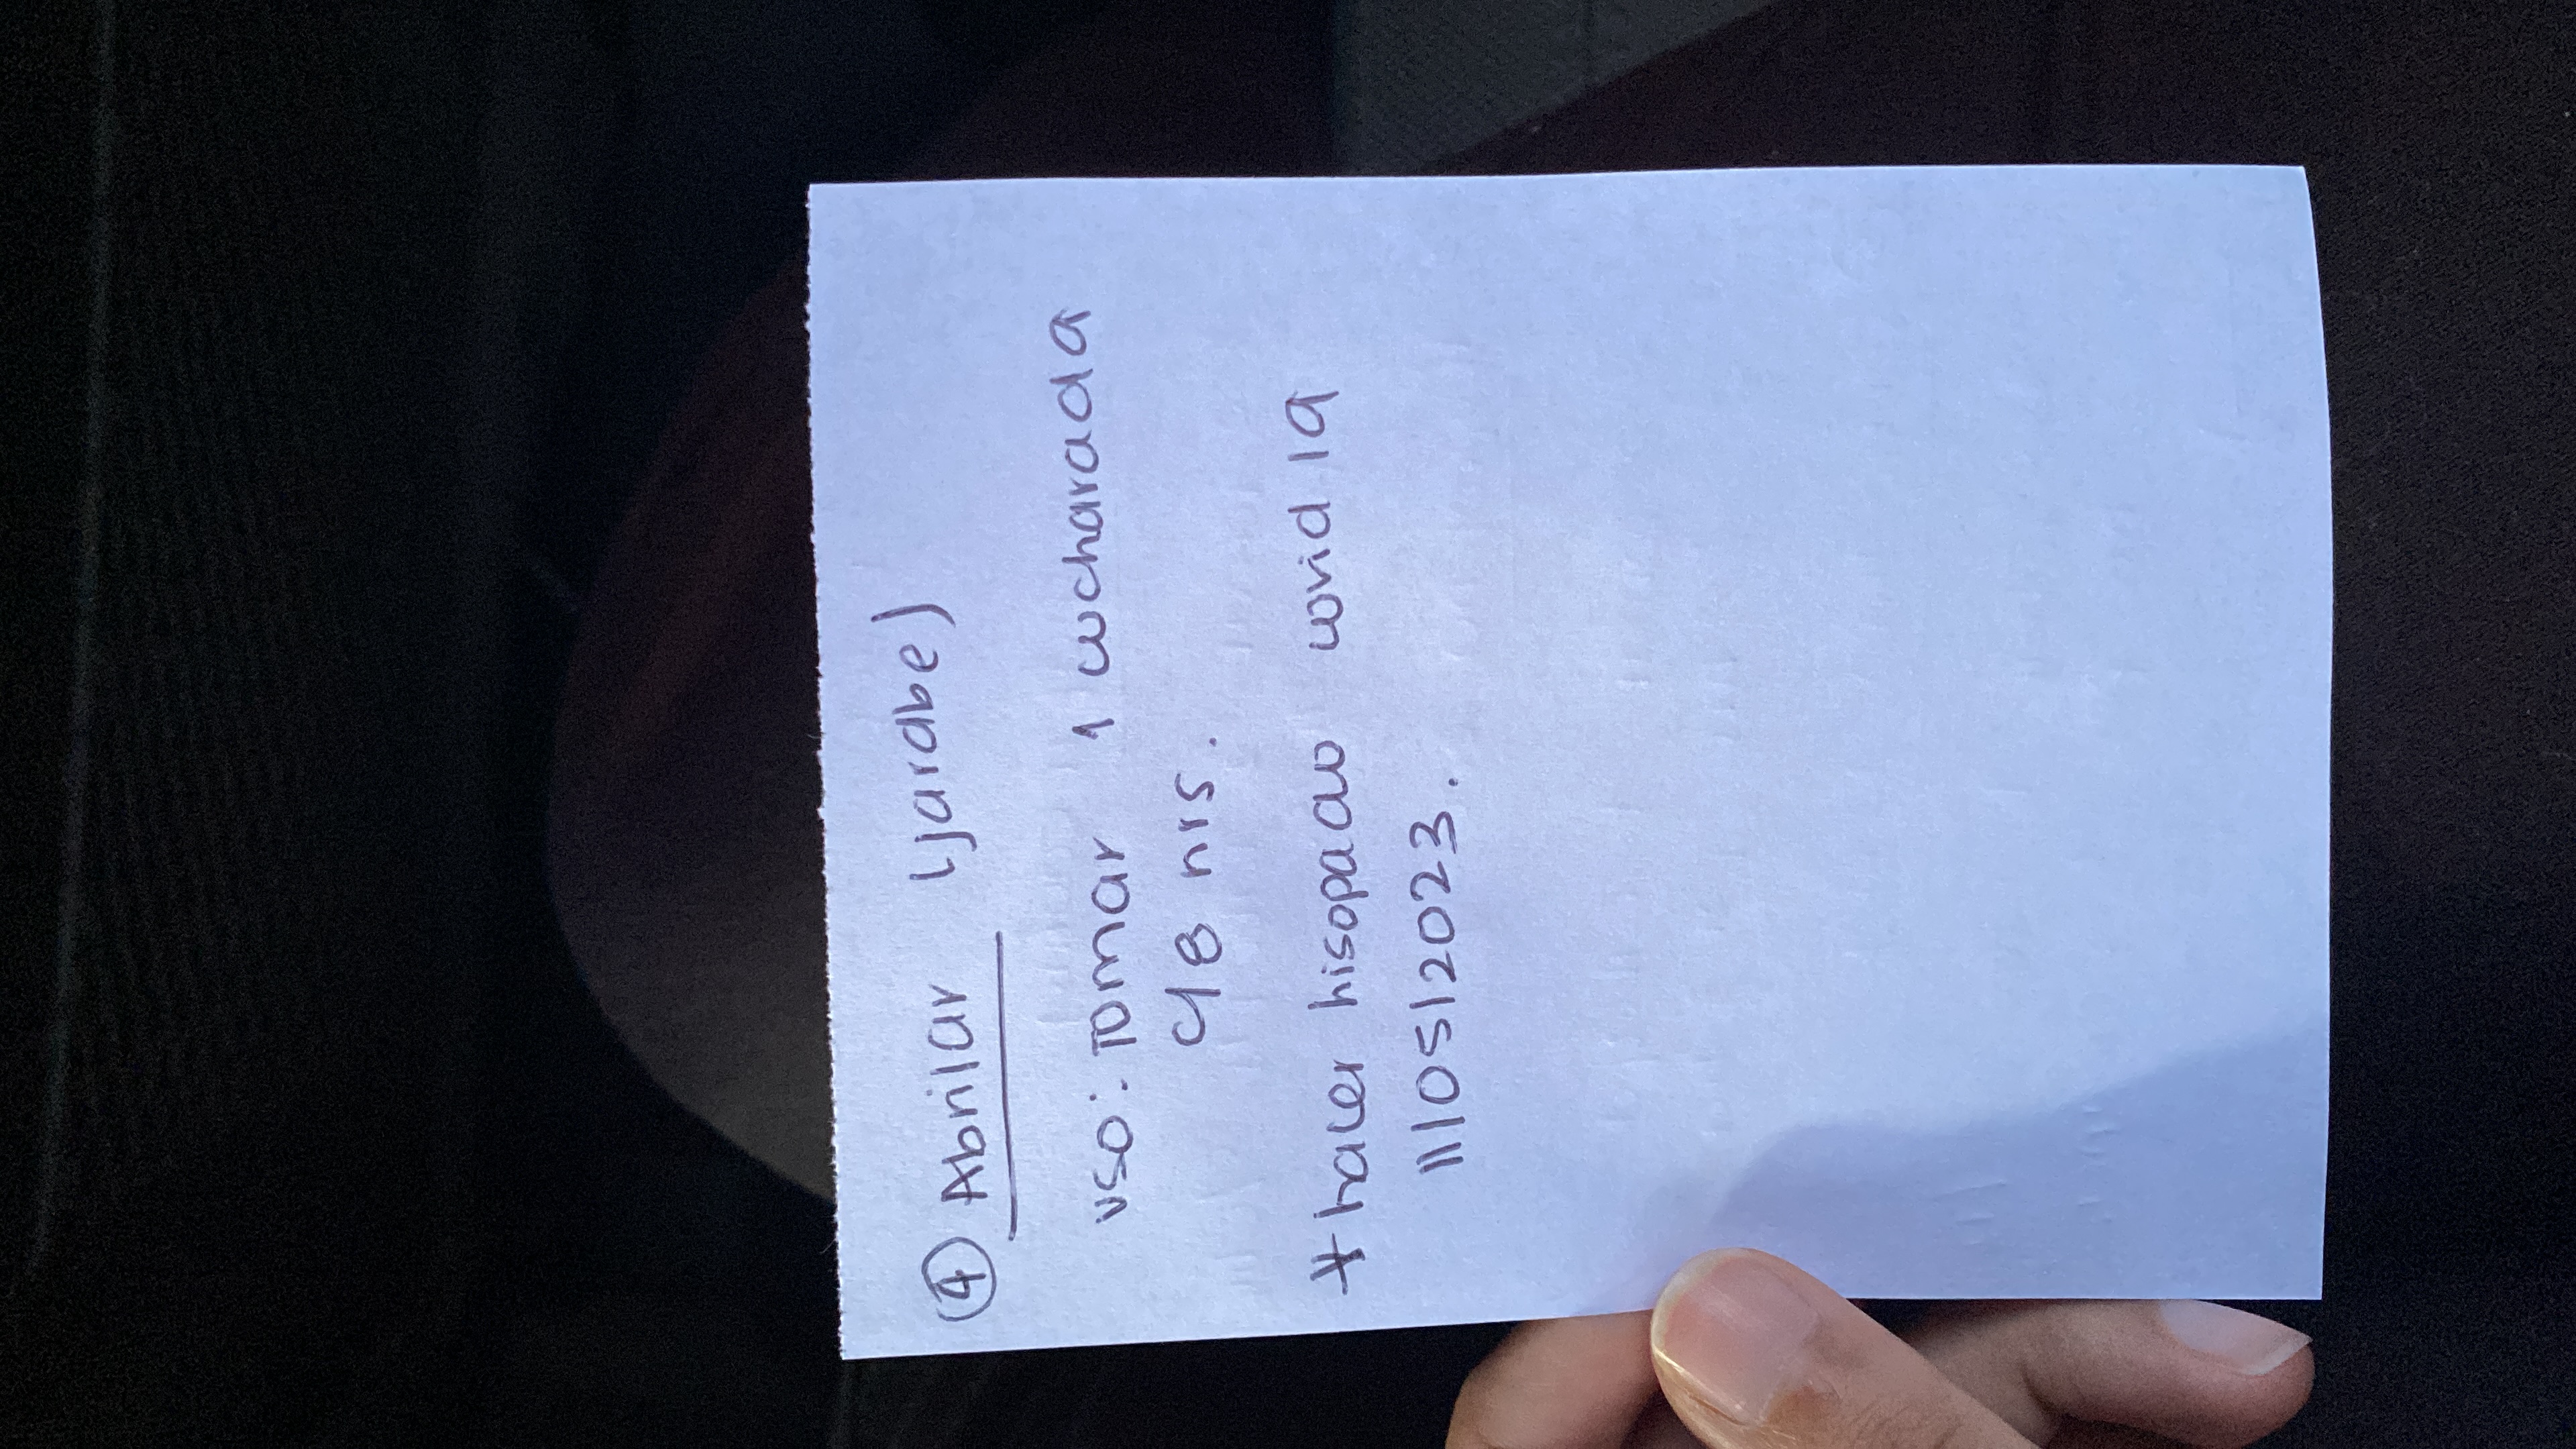 ④ Abrilar (jarabe)
uso: Tomar 1 cucharada
c/8 hrs.
* hacer hisopado covid 19
11/05/2023.